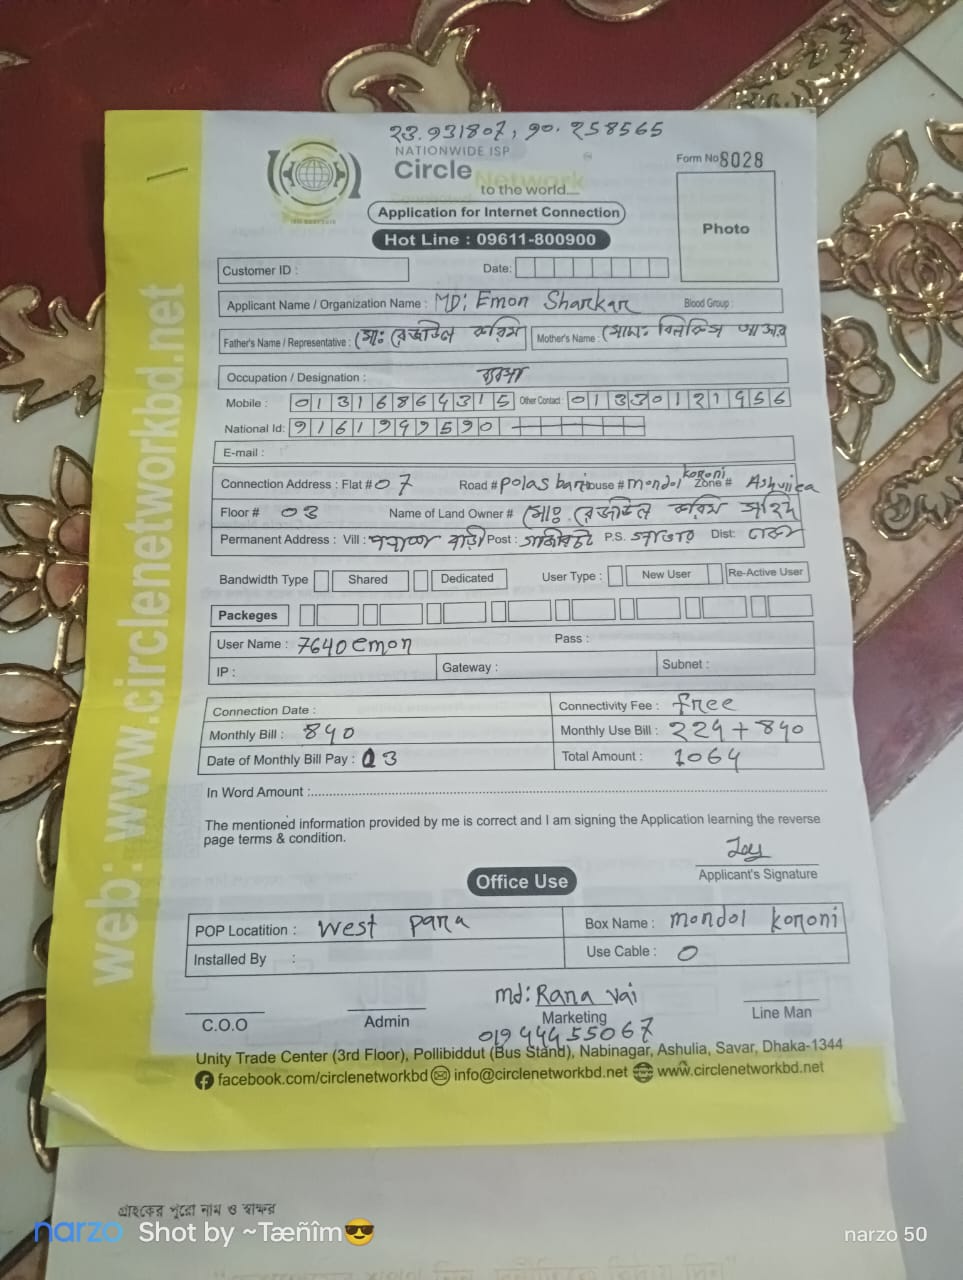 ২৩.৯৩১৪০৭, ৯০.২৫৪৫৬৫
NATIONWIDE ISP
Circle Network
to the world...
Form No 8028
Application for Internet Connection
Hot Line : 09611-800900
Photo
Customer ID :
Date:
Applicant Name / Organization Name : MD: Emon Sharkar Blood Group :
Father's Name / Representative : মোঃ রেজাউল করিম Mother's Name :
Occupation / Designation : ব্যবসা
Mobile : 01316864315 Other Contact : 01330121956
National Id: 9161949590
E-mail :
Connection Address : Flat # 07 Road # polas bari House # mondol koroni Zone # Ashuliea
Floor # 03 Name of Land Owner # মোঃ রেজাউল করিম
Permanent Address : Vill : পলাশ বাড়ী Post : P.S. সাভার Dist: ঢাকা
Bandwidth Type Shared Dedicated User Type : New User Re-Active User
Packeges
User Name : 7640emon Pass :
IP : Gateway : Subnet :
Connection Date : Connectivity Fee : free
Monthly Bill : 840 Monthly Use Bill : 224 + 840
Date of Monthly Bill Pay : 03 Total Amount : 1064
In Word Amount :
The mentioned information provided by me is correct and I am signing the Application learning the reverse
page terms & condition.
Applicant's Signature
Office Use
POP Locatition : West para Box Name : mondol koroni
Installed By : Use Cable : 0
md: Rana vai
C.O.O Admin Marketing Line Man
01944455067
Unity Trade Center (3rd Floor), Pollibiddut (Bus Stand), Nabinagar, Ashulia, Savar, Dhaka-1344
facebook.com/circlenetworkbd info@circlenetworkbd.net www.circlenetworkbd.net
web: www.circlenetworkbd.net
গ্রাহকের পুরো নাম ও স্বাক্ষর
narzo Shot by ~Tæñîm😎 narzo 50